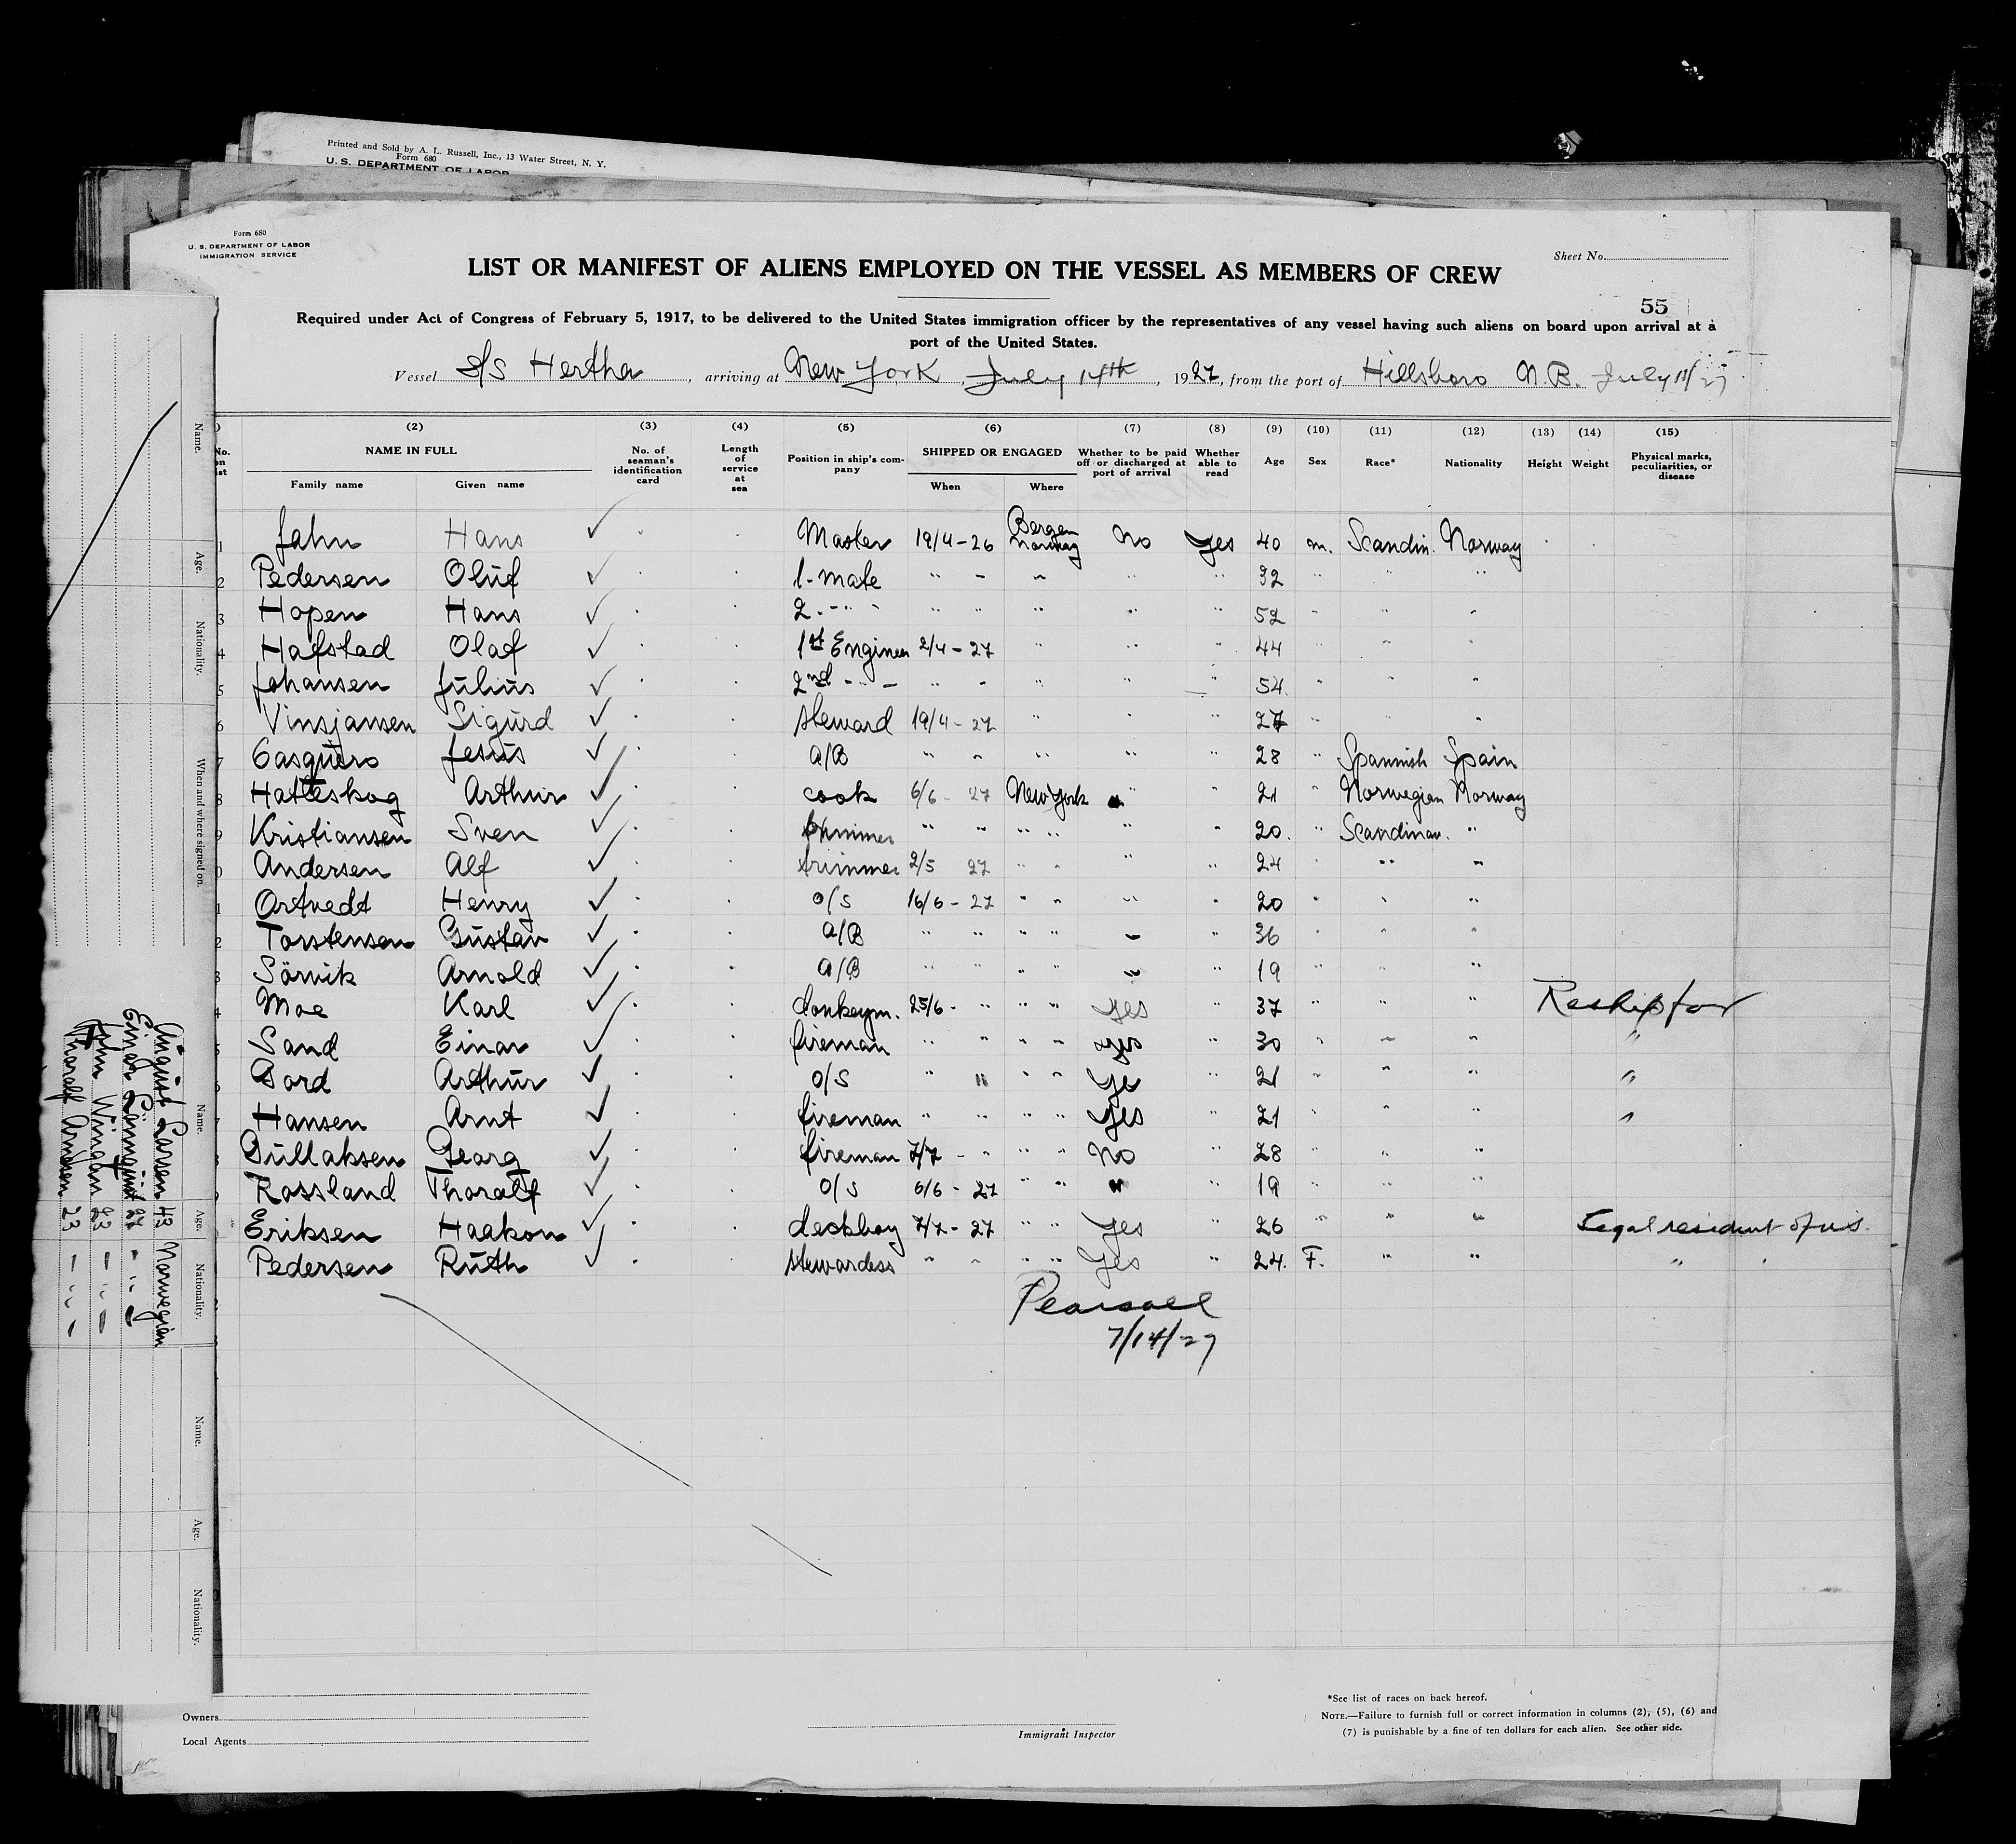 Printed and Sold by A. L. Russell, Inc., 13 Water Street, N. Y.
Form 680
U. S. DEPARTMENT OF LABOR
Form 680
U. S. DEPARTMENT OF LABOR
IMMIGRATION SERVICE
Sheet No.
LIST OR MANIFEST OF ALIENS EMPLOYED ON THE VESSEL AS MEMBERS OF CREW
55
Required under Act of Congress of February 5, 1917, to be delivered to the United States immigration officer by the representatives of any vessel having such aliens on board upon arrival at a
port of the United States.
Vessel S/S Hertha, arriving at New York, July 14th, 1927, from the port of Hillsboro N.B. July 11/27
(2) (3) (4) (5) (6) (7) (8) (9) (10) (11) (12) (13) (14) (15)
No. on list NAME IN FULL Family name Given name No. of seaman's identification card Length of service at sea Position in ship's company SHIPPED OR ENGAGED When Where Whether to be paid off or discharged at port of arrival Whether able to read Age Sex Race* Nationality Height Weight Physical marks, peculiarities, or disease
1 Jahn Hans ✓ Master 19/4-26 Bergen Norway No Yes 40 m. Scandin. Norway
2 Pedersen Oluf ✓ 1-mate " - " " " 32 " " "
3 Hopen Hans ✓ 2. - " " " " " " 52 " " "
4 Hafstad Olaf ✓ 1st Engineer 2/4-27 " " " 44 " " "
5 Johansen Julius ✓ 2nd - " - " - " " " 54. " " "
6 Vinsjansen Sigurd ✓ steward 19/4-27 " " " 27 " " "
7 Casquero Jesus ✓ a/B " " " " " 28 " Spannish Spain
8 Hatteskog Arthur ✓ cook 6/6-27 New York " " 21 " Norwegian Norway
9 Kristiansen Sven ✓ trimmer " " " " " " 20. " Scandinav. "
0 Andersen Alf ✓ trimmer 2/5 27 " " " " 24 " " "
1 Artvedt Henry ✓ o/s 16/6-27 " " " " 20 " " "
2 Torstensen Gustav ✓ a/B " " " " " " 36 " " "
3 Sörvik Arnold ✓ a/B " " " " " " 19 " " "
4 Moe Karl ✓ donkeym. 25/6- " " " yes " 37 " " " Reship for
5 Sand Einar ✓ fireman " " " " yes " 30 " " " "
6 Gord Arthur ✓ o/s " " " " Ye " 21 " " " "
7 Hansen Arnt ✓ fireman " " " " Yes " 21 " " " "
8 Gullaksen Georg ✓ fireman 7/7 - " " " No " 28 " " "
9 Rossland Thoralf ✓ o/s 6/6-27 " " " " 19 " " "
Eriksen Haakon ✓ deckboy 7/7-27 " " Yes " 26 " " " Legal resident of us.
Pedersen Ruth ✓ stewardess " " " " Yes " 24. F. " " "
Pearsall
7/14/27
Name. Age. Nationality. When and where signed on.
Name. Age. Nationality.
August Larsen 43 Norwegian
Einar Lönnquist "
John Wingan 23 "
Tharalf Arntsen 23 "
Name. Age. Nationality.
Owners
Local Agents
Immigrant Inspector
*See list of races on back hereof.
NOTE.—Failure to furnish full or correct information in columns (2), (5), (6) and
(7) is punishable by a fine of ten dollars for each alien. See other side.